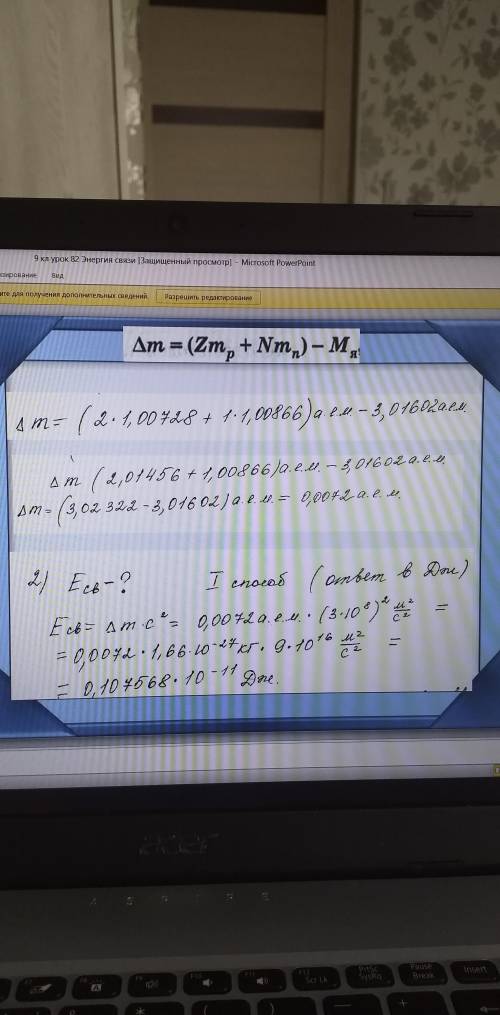 9 кл урок 82 Энергия связи [Защищенный просмотр] - Microsoft PowerPoint
Вид
для получения дополнительных сведений. Разрешить редактирование
Δm = (Zmp + Nmn) – Mя,
Δm = (2·1,00728 + 1·1,00866) а.е.м. – 3,01602 а.е.м.
Δm (2,01456 + 1,00866) а.е.м. – 3,01602 а.е.м.
Δm = (3,02322 – 3,01602) а.е.м. = 0,0072 а.е.м.
2) Eсв – ? I способ (ответ в Дж)
Eсв = Δm·c² = 0,0072 а.е.м. · (3·10⁸)² м²/с² =
= 0,0072 · 1,66·10⁻²⁷ кг · 9·10¹⁶ м²/с² =
= 0,107568·10⁻¹¹ Дж.
acer
F7 F8 F9 F10 F11 F12 Scr Lk PrtSc SysRq Pause Break Insert